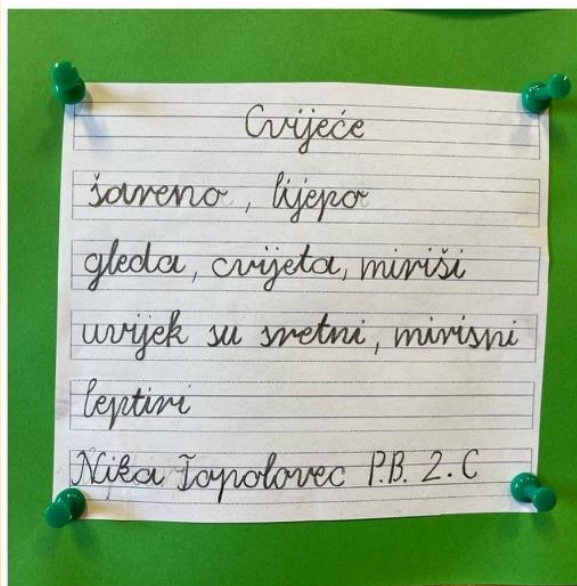 Cvijeće
šareno, lijepo
gleda, cvijeta, miriši
uvijek su sretni, mirisni
leptiri
Nika Topolovec P.B. 2. C